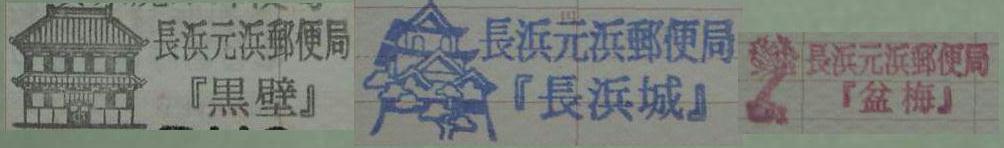 長浜元浜郵便局
『黒壁』
長浜元浜郵便局
『長浜城』
長浜元浜郵便局
『盆梅』